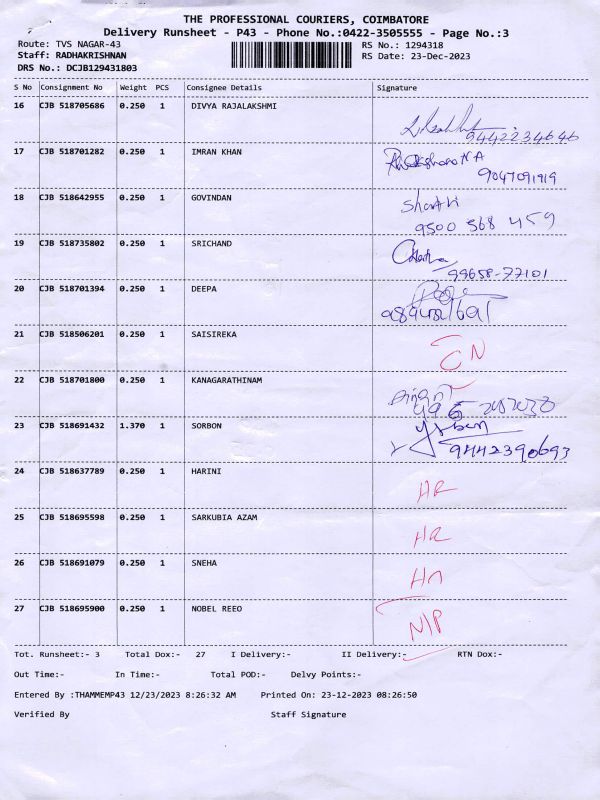 THE PROFESSIONAL COURIERS, COIMBATORE
Delivery Runsheet - P43 - Phone No.:0422-3505555 - Page No.:3
Route: TVS NAGAR-43 RS No.: 1294318
Staff: RADHAKRISHNAN RS Date: 23-Dec-2023
DRS No.: DCJB129431803
S No Consignment No Weight PCS Consignee Details Signature
16 CJB 518705686 0.250 1 DIVYA RAJALAKSHMI
9442234646
17 CJB 518701282 0.250 1 IMRAN KHAN
9047091919
18 CJB 518642955 0.250 1 GOVINDAN Shanthi
9500 568 459
19 CJB 518735802 0.250 1 SRICHAND
99658-77101
20 CJB 518701394 0.250 1 DEEPA
21 CJB 518506201 0.250 1 SAISIREKA
CN
22 CJB 518701800 0.250 1 KANAGARATHINAM
23 CJB 518691432 1.370 1 SORBON
9442390693
24 CJB 518637789 0.250 1 HARINI
HR
25 CJB 518695598 0.250 1 SARKUBIA AZAM
HR
26 CJB 518691079 0.250 1 SNEHA
27 CJB 518695900 0.250 1 NOBEL REEO
N/P
Tot. Runsheet:- 3 Total Dox:- 27 I Delivery:- II Delivery:- RTN Dox:-
Out Time:- In Time:- Total POD:- Delvy Points:-
Entered By :THAMMEMP43 12/23/2023 8:26:32 AM Printed On: 23-12-2023 08:26:50
Verified By Staff Signature